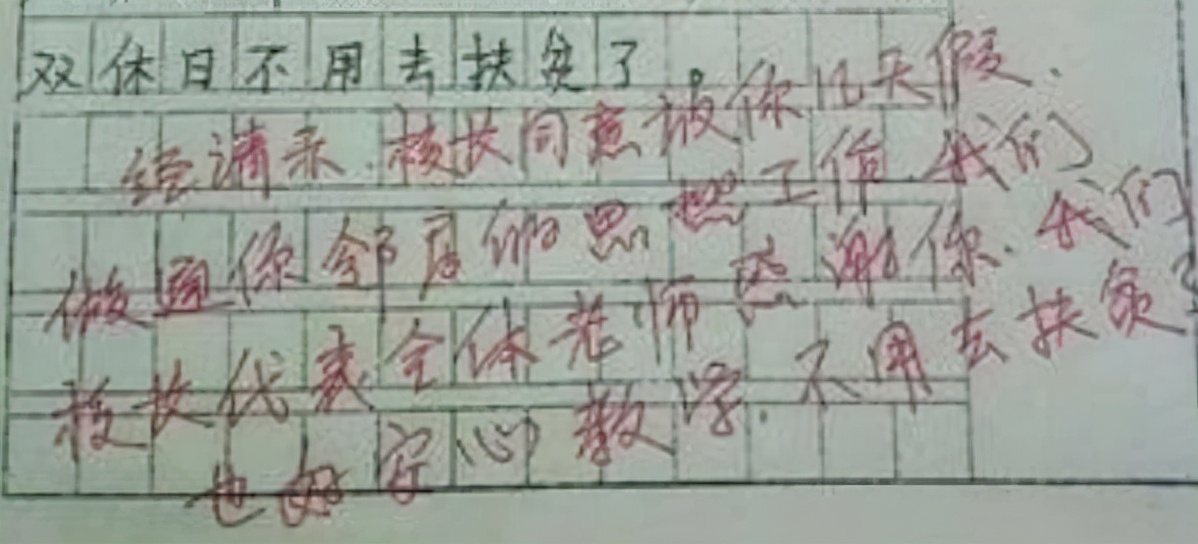 双休日不用去扶贫了。
经请示,校长同意放你几天假,
做通你邻居的思想工作,我们
校长代表全体老师感谢你,我们
也好安心教学,不用去扶贫